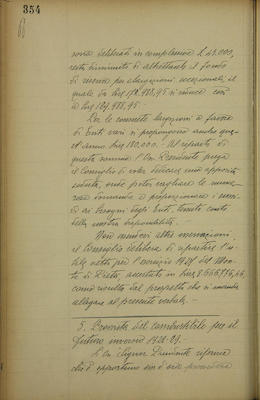 354
sono deliberati in complessive L. 45.000,
resta diminuito di altrettanto il fondo
di riserva per elargizioni eccezionali, il
quale da Lire 172.488,45 si riduce così
a Lire 127.488,45.
Per le consuete elargizioni a favore
di Enti vari si propongono anche que-
st'anno Lire 180.000.- Al riparto di
questa somma l'On. Presidente prega
il Consiglio di voler dedicare una apposita
seduta, onde poter vagliare le nume-
rose domande e proporzionare i sussi-
di ai bisogni degli Enti, tenuto conto
della nostra disponibilità.
Non essendovi altre osservazioni,
il Consiglio delibera di ripartire l'u-
tile netto per l'esercizio 1927 del Mon-
te di Pietà, accertato in Lire
come risulta dal prospetto che si
allegato al presente verbale.
5. Provvista del combustibile per il
futuro inverno 1928-29.-
L'On. Signor Presidente riferisce
che è opportuno sin d'ora provvedere